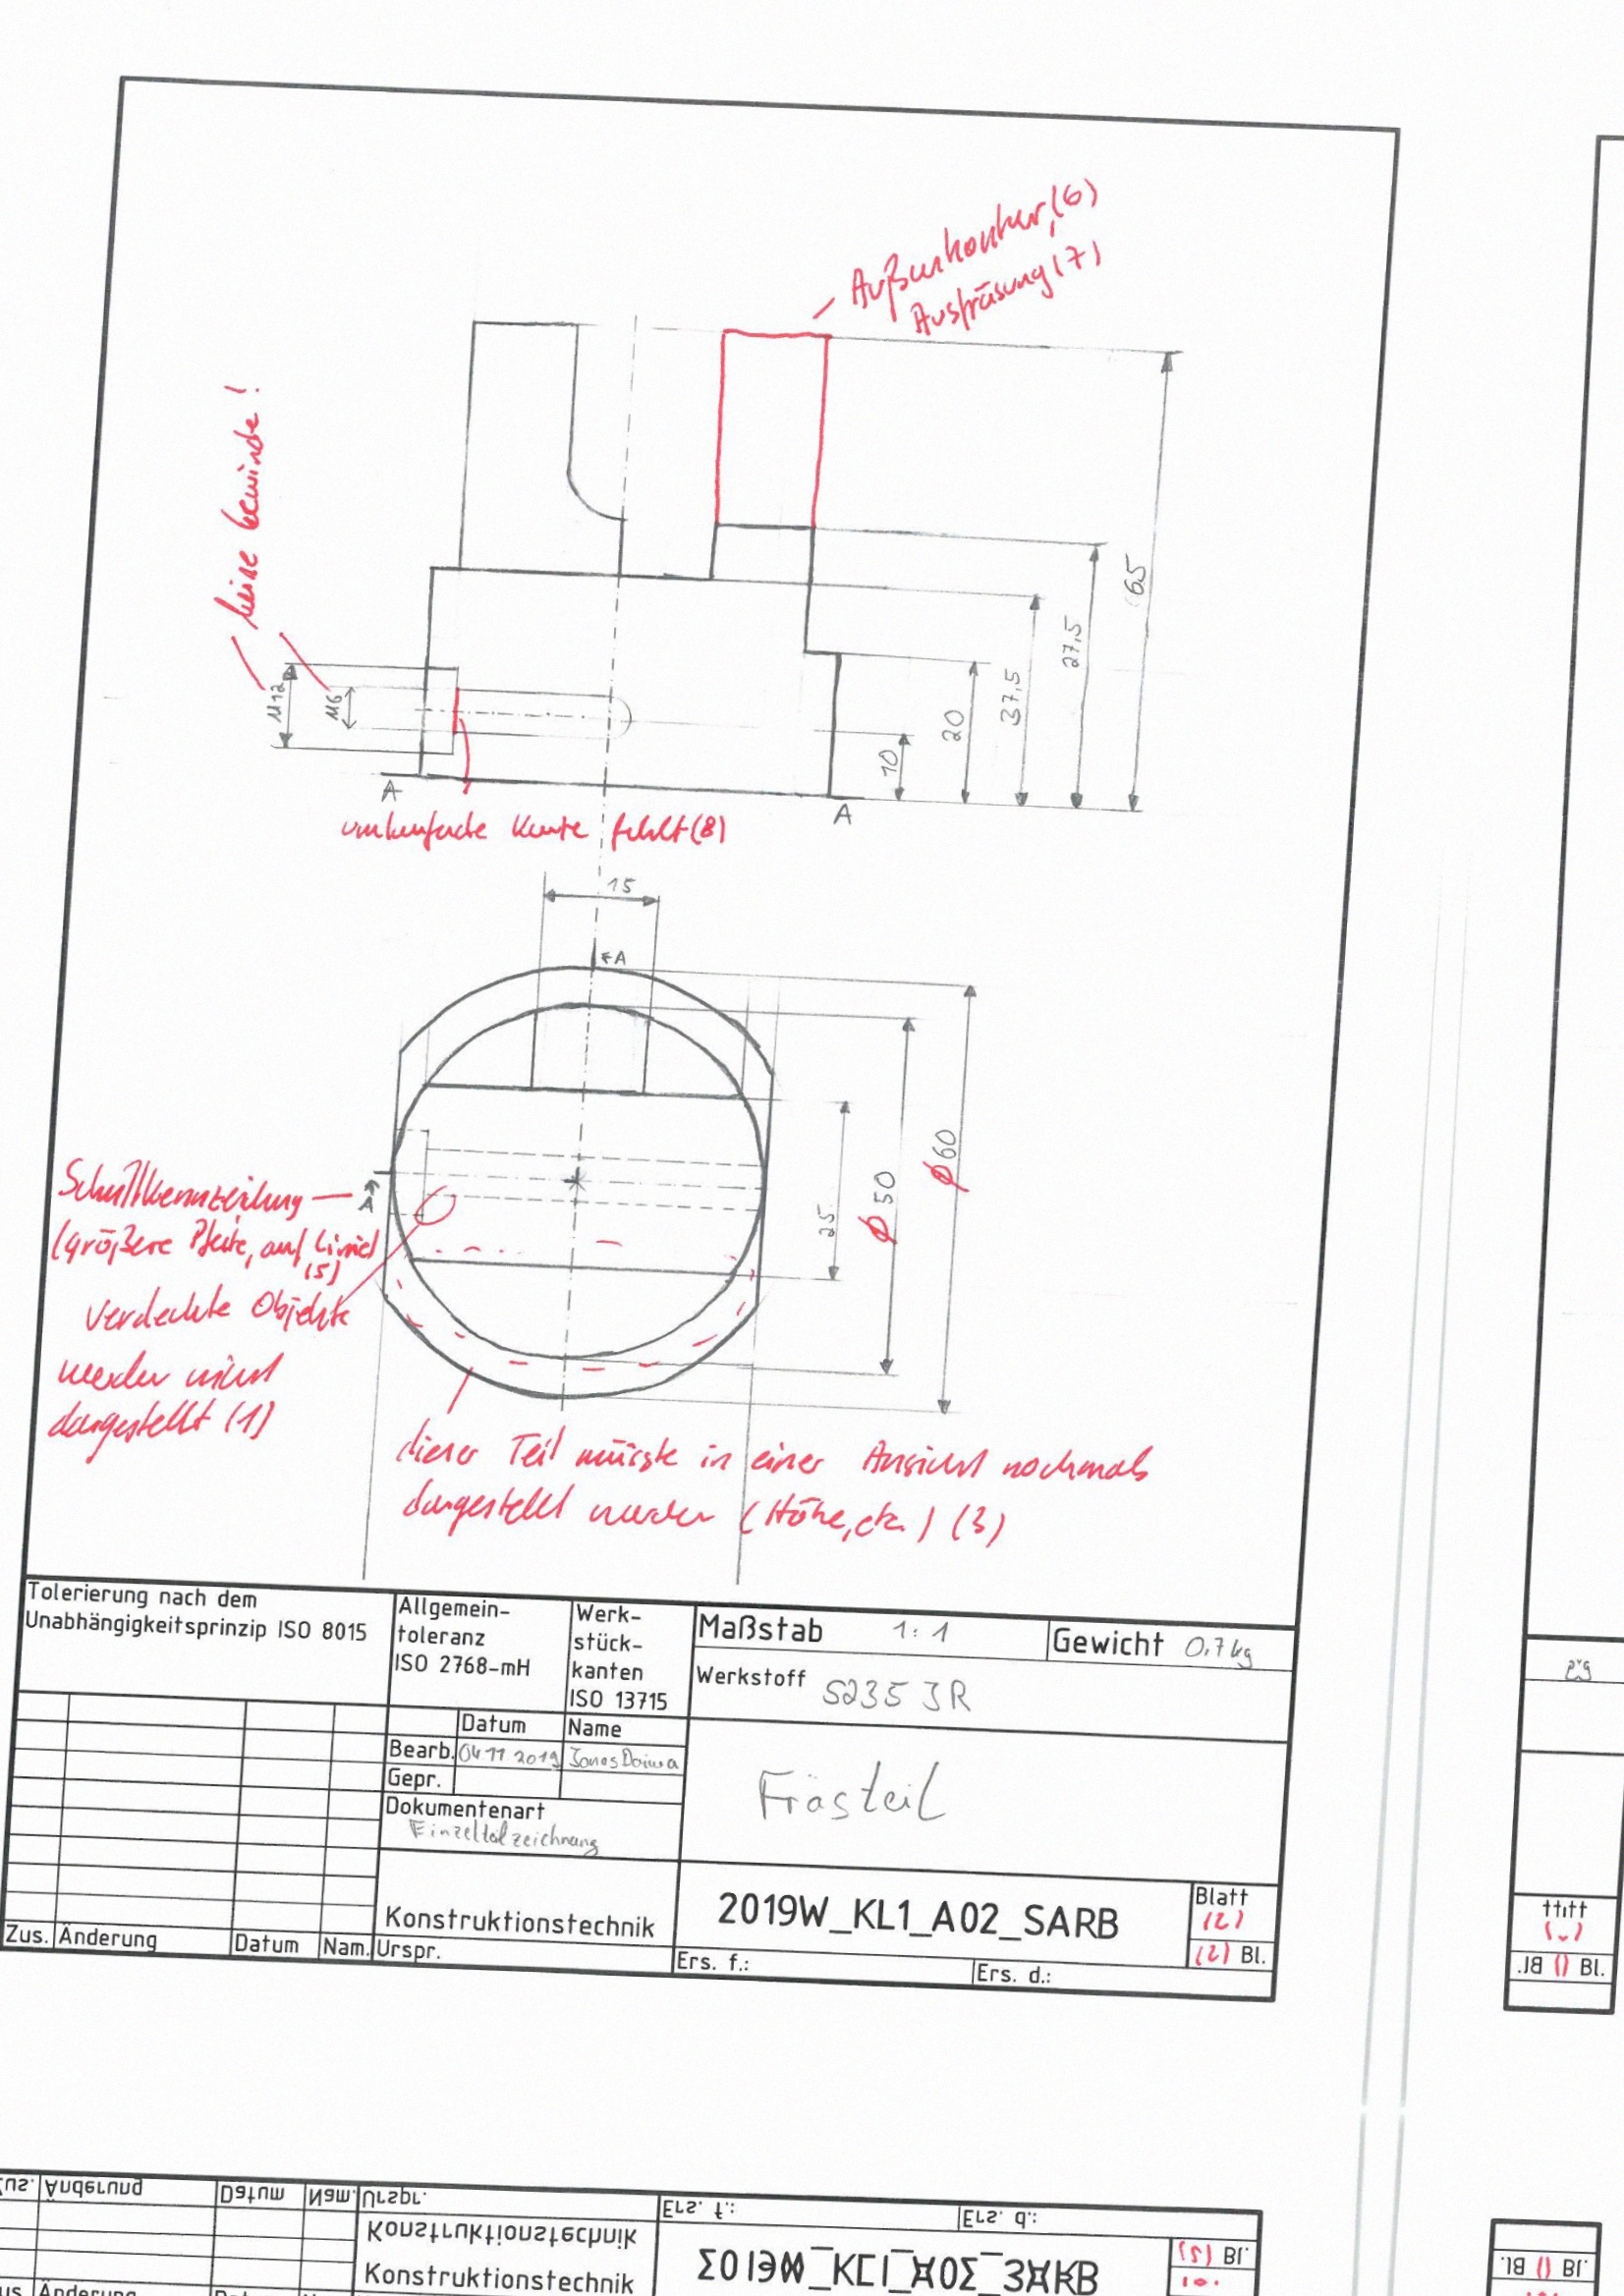 Außenkontur, (6)
Ausfräsung (7)
keine Gewinde!
M12
M6
10
20
37,5
27,5
65
A
A
umlaufende Kante fehlt (8)
15
A
A
25
50
60
Schnittkennzeichnung
(größere Pfeile, auf Linie)
(5)
verdeckte Objekte
werden nicht
dargestellt (1)
dieser Teil müsste in einer Ansicht nochmals
dargestellt werden (Höhe, etc.) (3)
Tolerierung nach dem
Unabhängigkeitsprinzip ISO 8015
Allgemein-
toleranz
ISO 2768-mH
Werk-
stück-
kanten
ISO 13715
Maßstab 1:1
Gewicht 0,7kg
Werkstoff S235 JR
Datum Name
Bearb. 04.11.2019 Jonas
Gepr.
Dokumentenart
Einzelteilzeichnung
Frästeil
Konstruktionstechnik
2019W_KL1_A02_SARB
Blatt
(2)
(2) Bl.
Zus. Änderung Datum Nam. Urspr.
Ers. f.: Ers. d.:
() Bl.
Änderung Datum Nam. Urspr.
Ers. f.: Ers. d.:
Konstruktionstechnik
Konstruktionstechnik
Bl.
() Bl.
Änderung